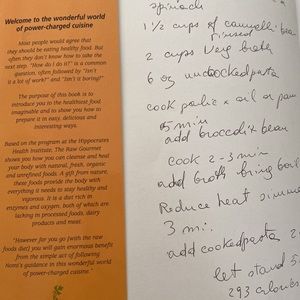 Welcome to the wonderful world
of power-charged cuisine
Most people would agree that
they should be eating healthy food. But
often they don't know how to take the
next step. "How do I do it" is a common
question, often followed by "Isn't
it a lot of work?" and "Isn't it boring?"
The purpose of this book is to
introduce you to the healthiest food
imaginable and to show you how to
prepare it in easy, delicious and
interesting ways.
Based on the program at the Hippocrates
Health Institute, The Raw Gourmet
shows you how you can cleanse and heal
your body with natural, fresh, organic
and unrefined foods. A gift from nature,
these foods provide the body with
everything it needs to stay healthy and
vigorous. It is a diet rich in
enzymes and oxygen, both of which are
lacking in processed foods, dairy
products and meat.
"However far you go [with the raw
foods diet] you will gain enormous benefit
from the simple act of following
Nomi's guidance in this wonderful world
of power-charged cuisine."
spinach
1 1/2 cups of bea
rinsed
2 cups Veg broth
6 oz uncooked pasta
cook garlic x oil or pam
5 min
add brocoli bean
cook 2-3 min
add broth bring boil
Reduce heat simme
3 mi.
add cooked pasta 2
let stand 5
293 calories